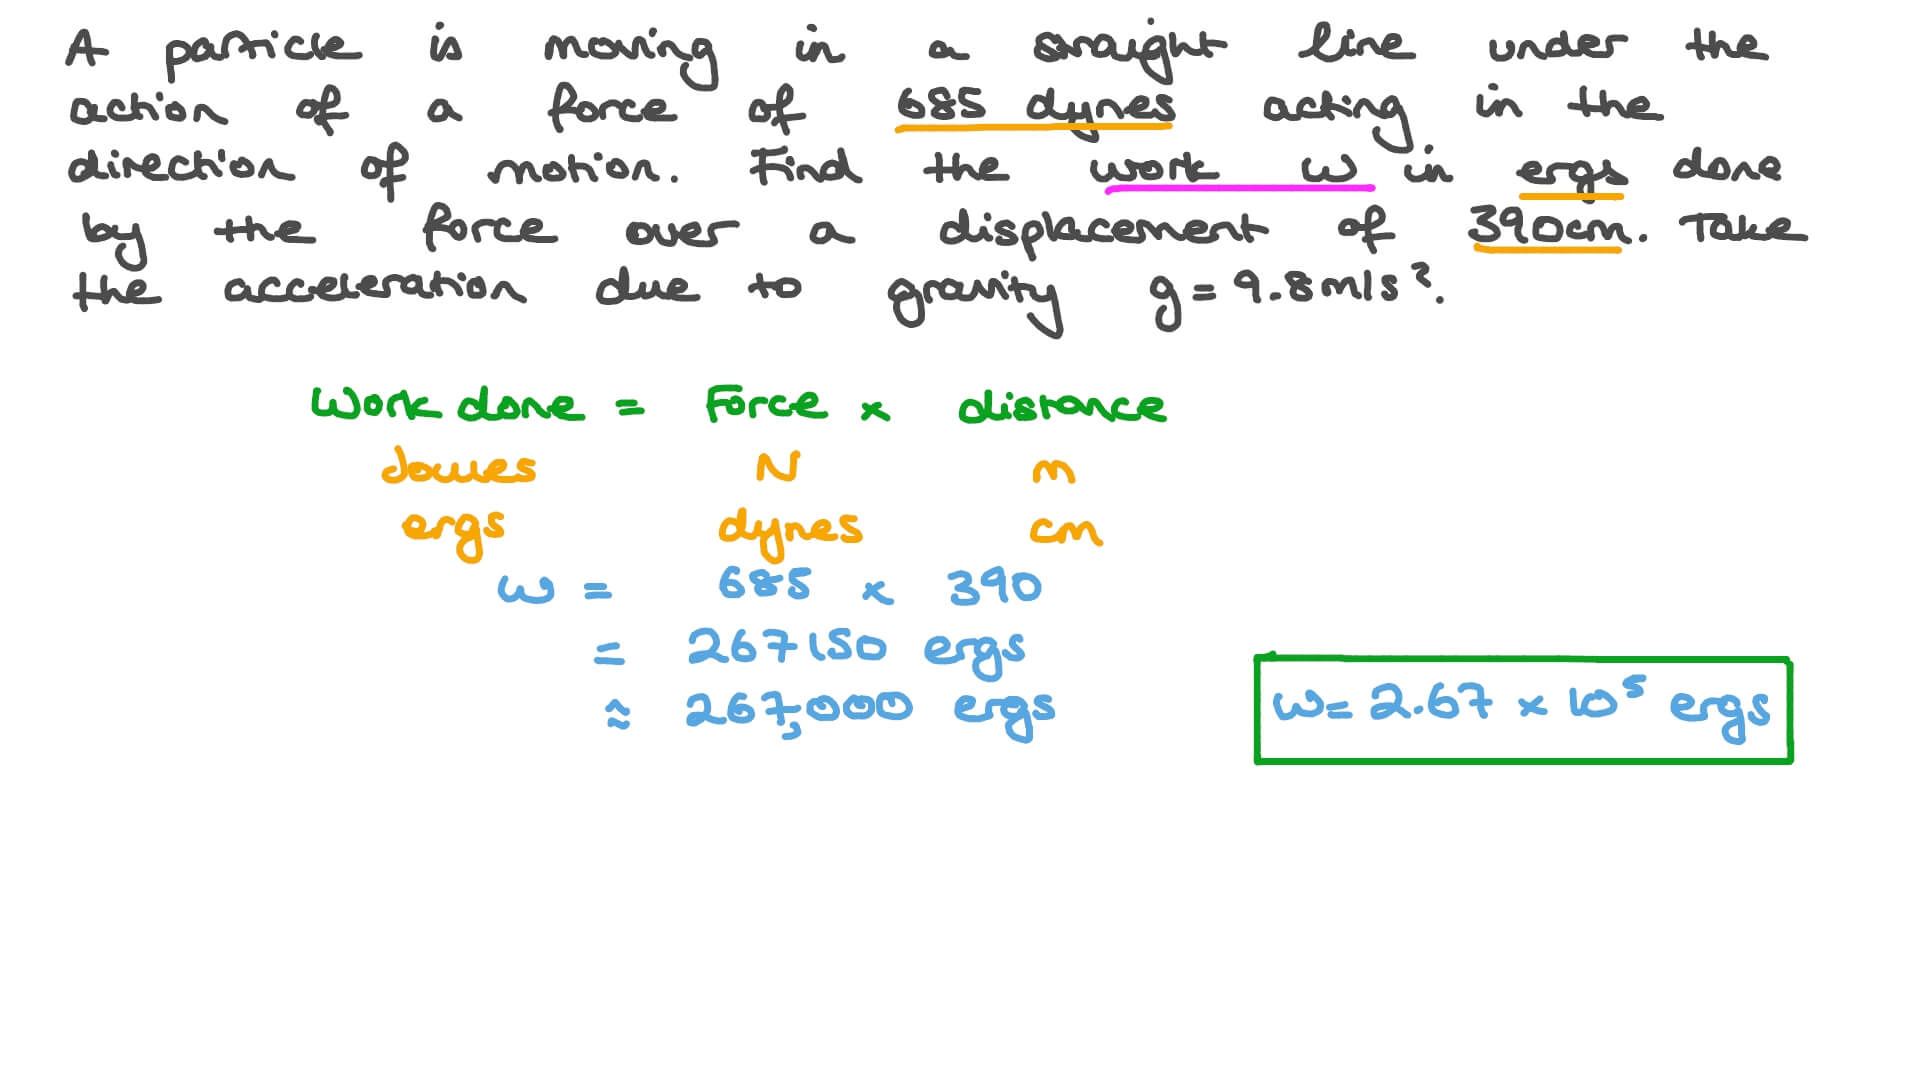 A particle is moving in a straight line under the
action of a force of 685 dynes acting in the
direction of motion. Find the work W in ergs done
by the force over a displacement of 390cm. Take
the acceleration due to gravity g = 9.8 m/s².
Work done = Force × distance
Joules N m
ergs dynes cm
W = 685 × 390
= 267150 ergs
≈ 267,000 ergs
W = 2.67 × 10⁵ ergs